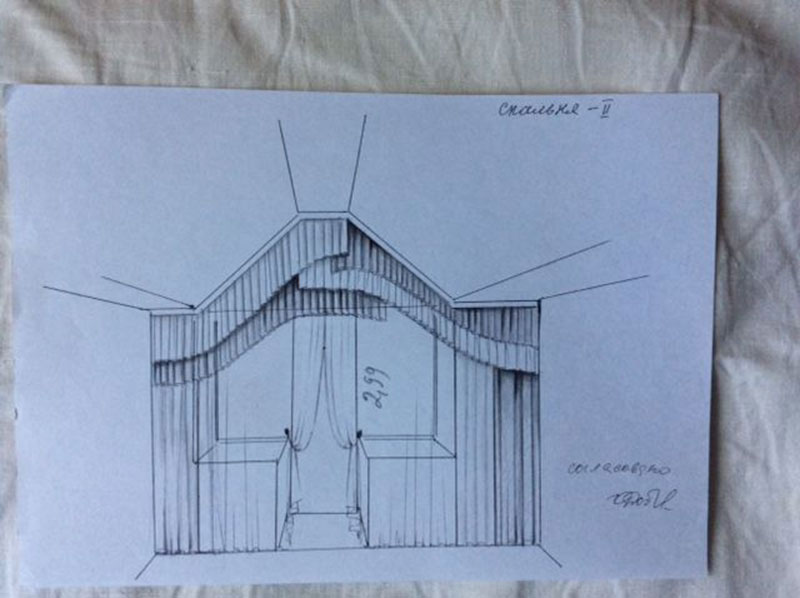 Спальня - II
2,99
согласовано